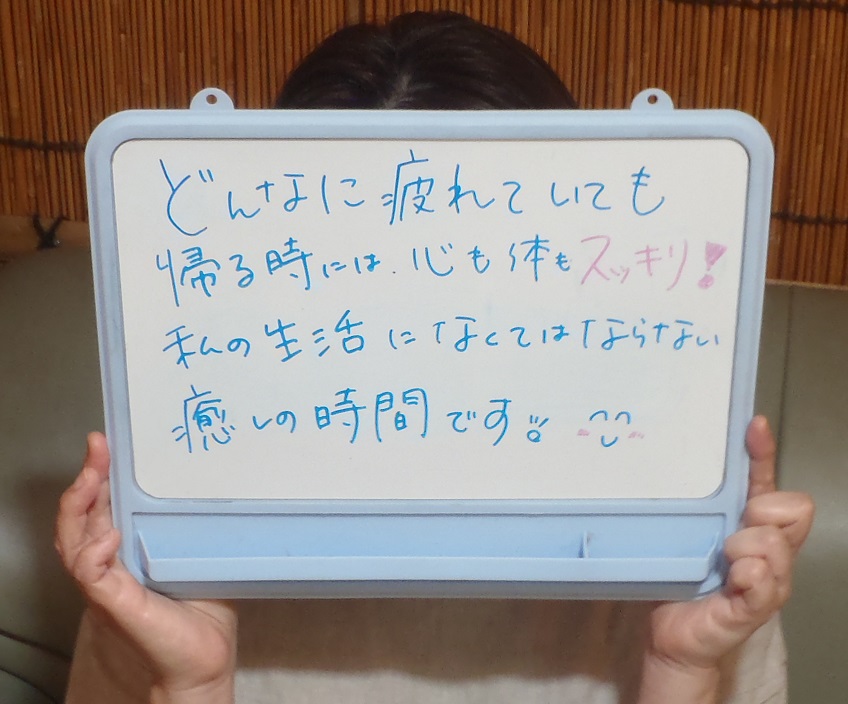 どんなに疲れていても
帰る時には、心も体もスッキリ!
私の生活になくてはならない
癒しの時間です!!